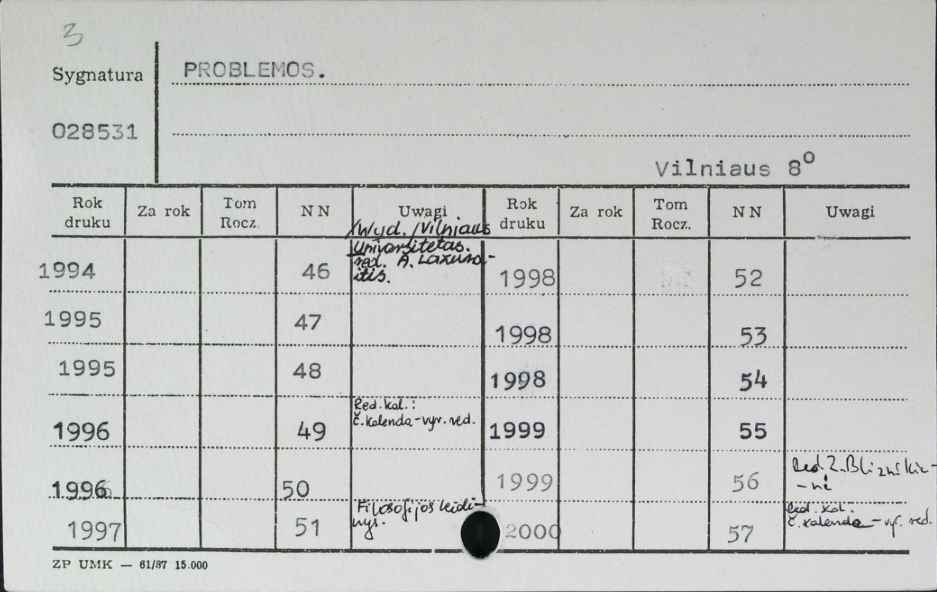 3
Sygnatura PROBLEMOS.
028531
Vilniaus 8°
Rok druku Za rok Tom Rocz. NN Uwagi Rok druku Za rok Tom Rocz. NN Uwagi
Wyd. /Vilniaus
Universitetas.
red. A.
1994 46 1998 52
1995 47 1998 53
1995 48 1998 54
Red. kol.:
č. kalenda - vyr. red.
1996 49 1999 55
1996 50 1999 56 Red. Z.
Filosofijos leidi-
nys.
1997 51 2000 57 Red. kol.:
č. kalenda - vyr. red.
ZP UMK — 61/87 15.000